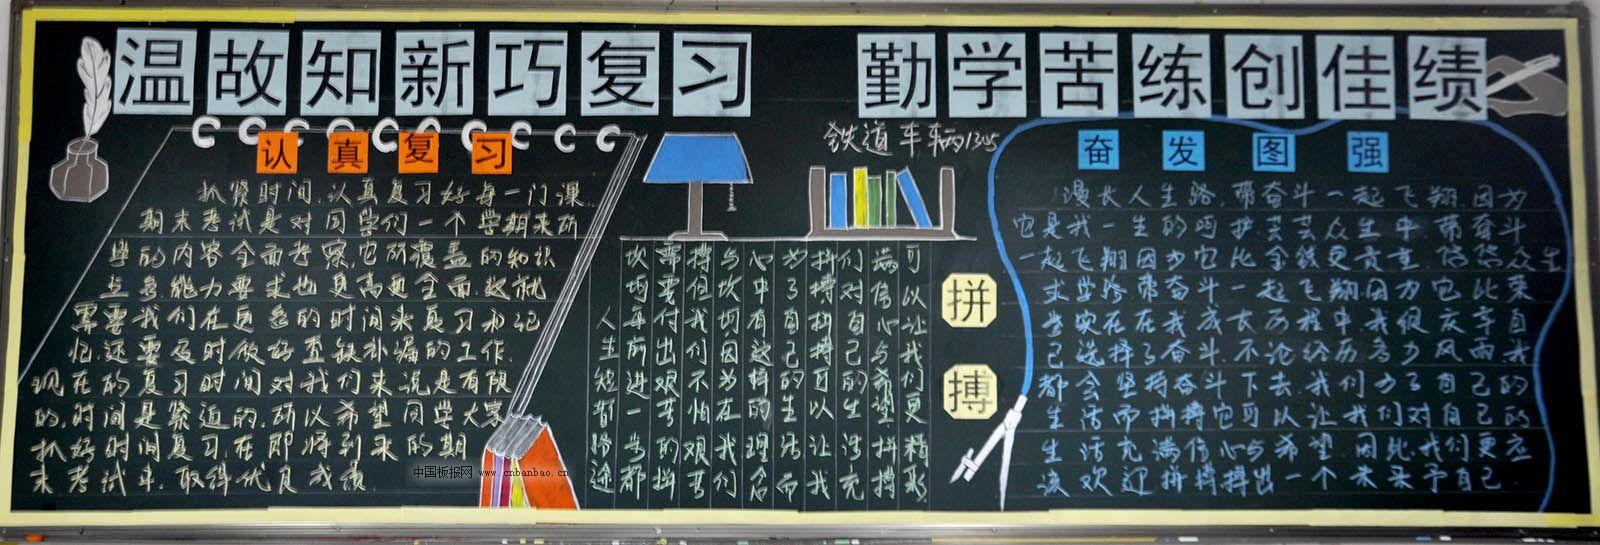 温故知新巧复习 勤学苦练创佳绩
认真复习
抓紧时间,认真复习好每一门课.
期末考试是对同学们一个学期来所
学的内容全面考察,它所覆盖的知识
点多,能力要求也更高更全面.这就
需要我们在更多的时间来复习和记
忆,还要及时做好查缺补漏的工作.
现在的复习时间对我们来说是有限
的,时间是紧迫的.所以希望同学大家
抓好时间复习,在即将到来的期
末考试中.取得优良成绩
中国板报网 www.cnbanbao.cn
铁道车辆1345
拼搏
可以让我们更精彩.
满信心与希望拼搏
们对自己的生活充
拼搏拼搏可以让我
为了自己的生活而
心中有这样的理念
与坎坷因为在我们
搏但我们不怕艰苦
需要付出艰苦的拼
坎坷再前进一步都
人生短暂路途
奋发图强
漫长人生路,带奋斗一起飞翔.因为
它是我一生的呵护芸芸众生中.带奋斗
一起飞翔因为它比金钱更贵重.悠悠众生
求学路带奋斗一起飞翔因为它比荣
誉实在在我成长历程中我很庆幸自
己选择了奋斗.不论经历多少风雨我
都会坚持奋斗下去.我们为了自己的
生活而拼搏它可以让我们对自己的
生活充满信心与希望.因此.我们更应
该欢迎拼搏拼出一个未来予自己.